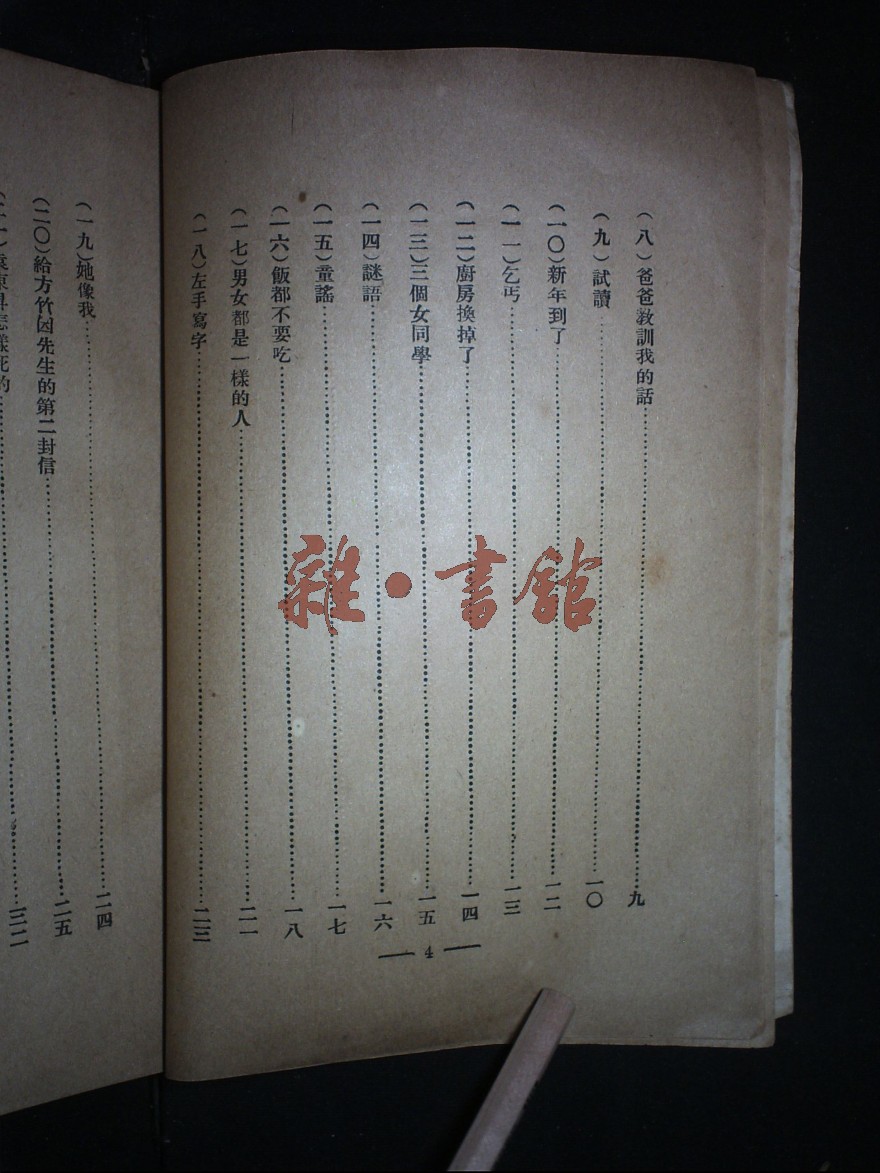 （八）爸爸教訓我的話……九
（九）試讀……一〇
（一〇）新年到了……一二
（一一）乞丐……一三
（一二）廚房換掉了……一四
（一三）三個女同學……一五
（一四）謎語……一六
（一五）童謠……一七
（一六）飯都不要吃……一八
（一七）男女都是一樣的人……二一
（一八）左手寫字……二三
— 4 —
（一九）她像我……二四
（二〇）給方竹因先生的第二封信……二五
怎樣死的
雜·書館